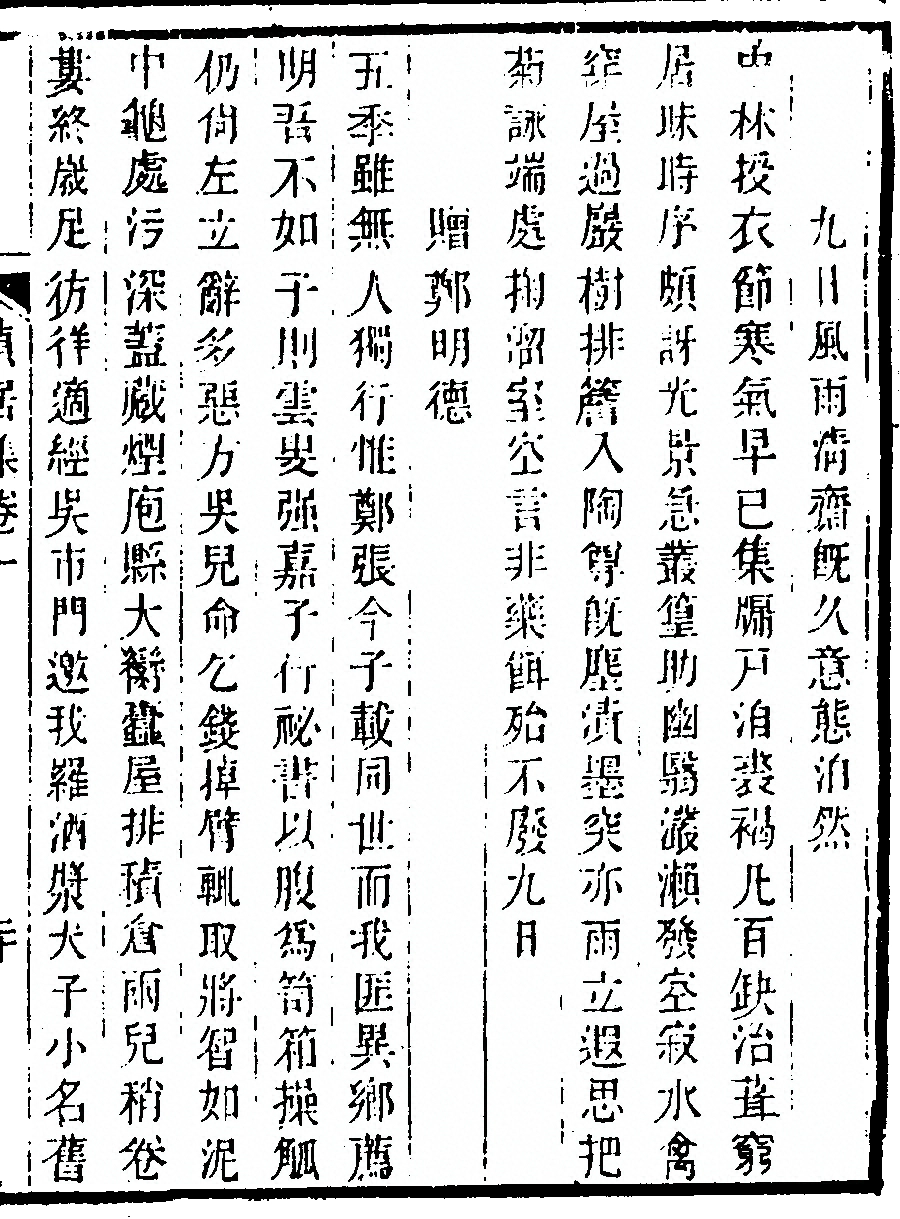 九日風雨清齋旣久意態泊然
中林授衣節寒氣早已集牖戸泊裘褐凡百缺治葺窮
居昧時序頗訝光景急叢篁助幽翳叢瀨發空寂水禽
窄屋過嚴樹排簷入陶尊旣塵漬墨突亦雨立遐思把
菊詠端處掬溜室空言非藥餌殆不廢九日
贈鄭明德
五季雖無人獨行惟鄭張今子載同世而我匪異鄉薦
明吾不如子則雲叟强嘉子行祕書以腹爲笥箱操觚
仍尚左立辭多惡方吳兒命乞錢掉臂輒取將智如泥
中龜處污深蓋藏煙庖縣大臠蠹屋排積倉兩兒稍卷
婁終歲足彷徉適經吳市門邀我羅酒漿犬子小名舊
貞居集卷一